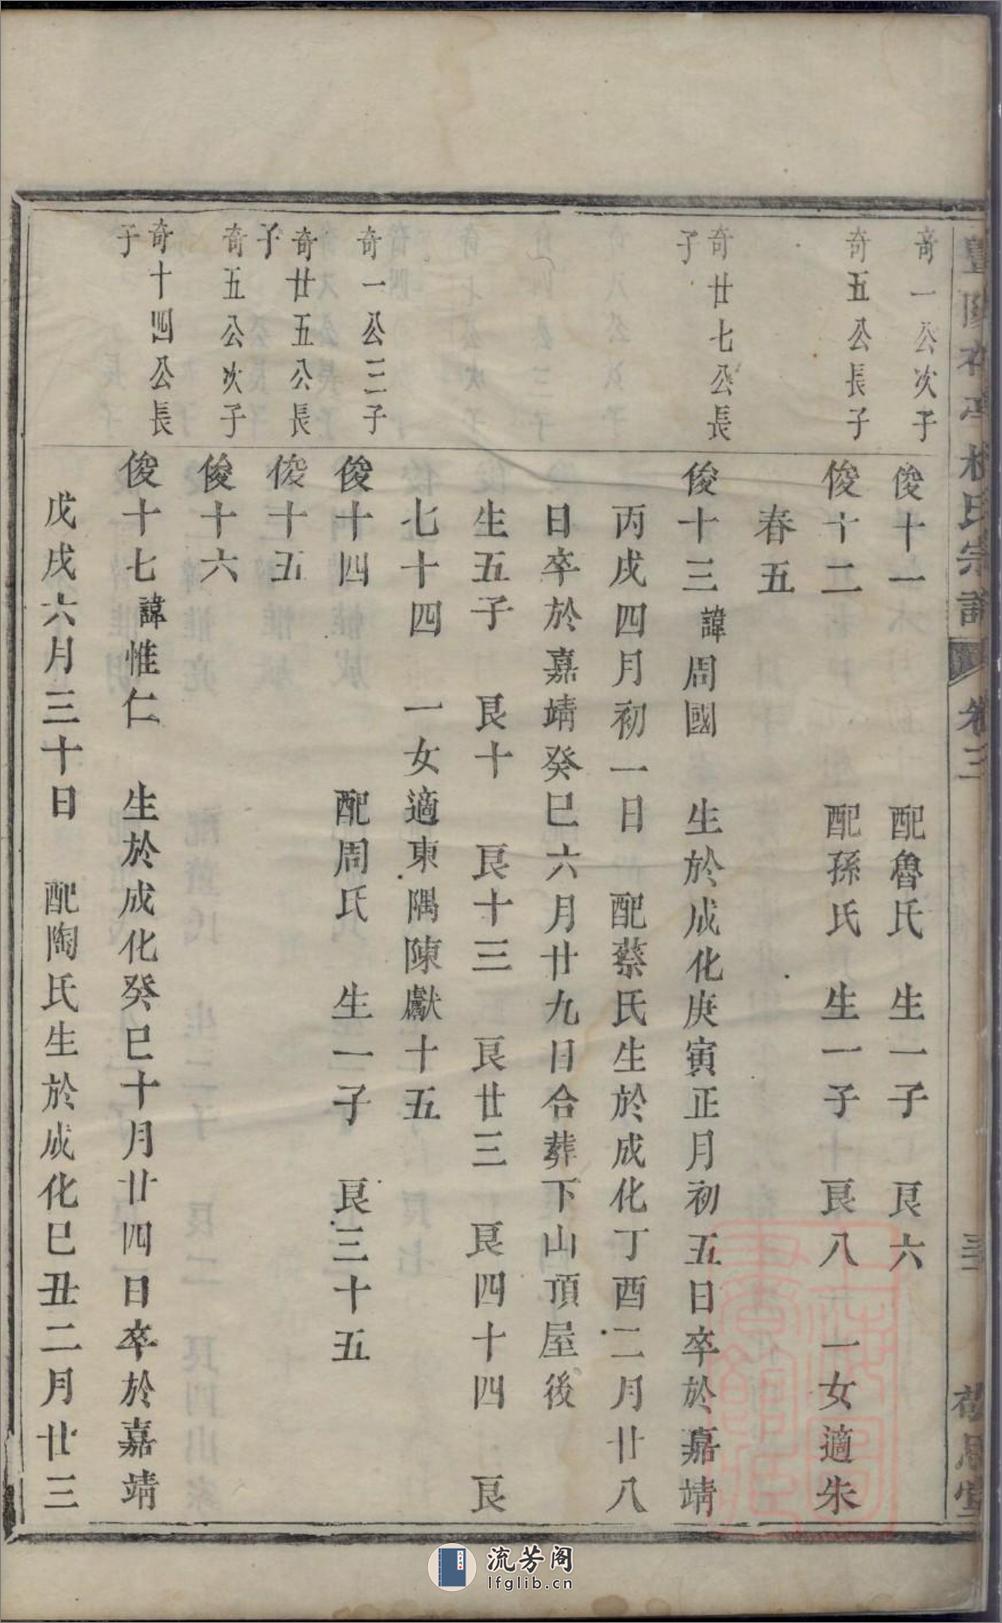 宗譜 卷三
奇一公次子
俊十一 配魯氏 生一子 良六
奇五公長子
俊十二 配孫氏 生一子 良八 一女適朱
春五
奇廿七公長子
俊十三 諱周國 生於成化庚寅正月初五日卒於嘉靖
丙戌四月初一日 配蔡氏生於成化丁酉二月廿八
日卒於嘉靖癸巳六月廿九日合葬下山頂屋後
生五子 良十 良十三 良廿三 良四十四 良
七十四 一女適東隅陳獻十五
奇一公三子
俊十四 配周氏 生一子 良三十五
奇廿五公長子
俊十五
奇五公次子
俊十六
奇十四公長子
俊十七 諱惟仁 生於成化癸巳十月廿四日卒於嘉靖
戊戌六月三十日 配陶氏生於成化巳丑二月廿三
流芳阁
lfglib.cn